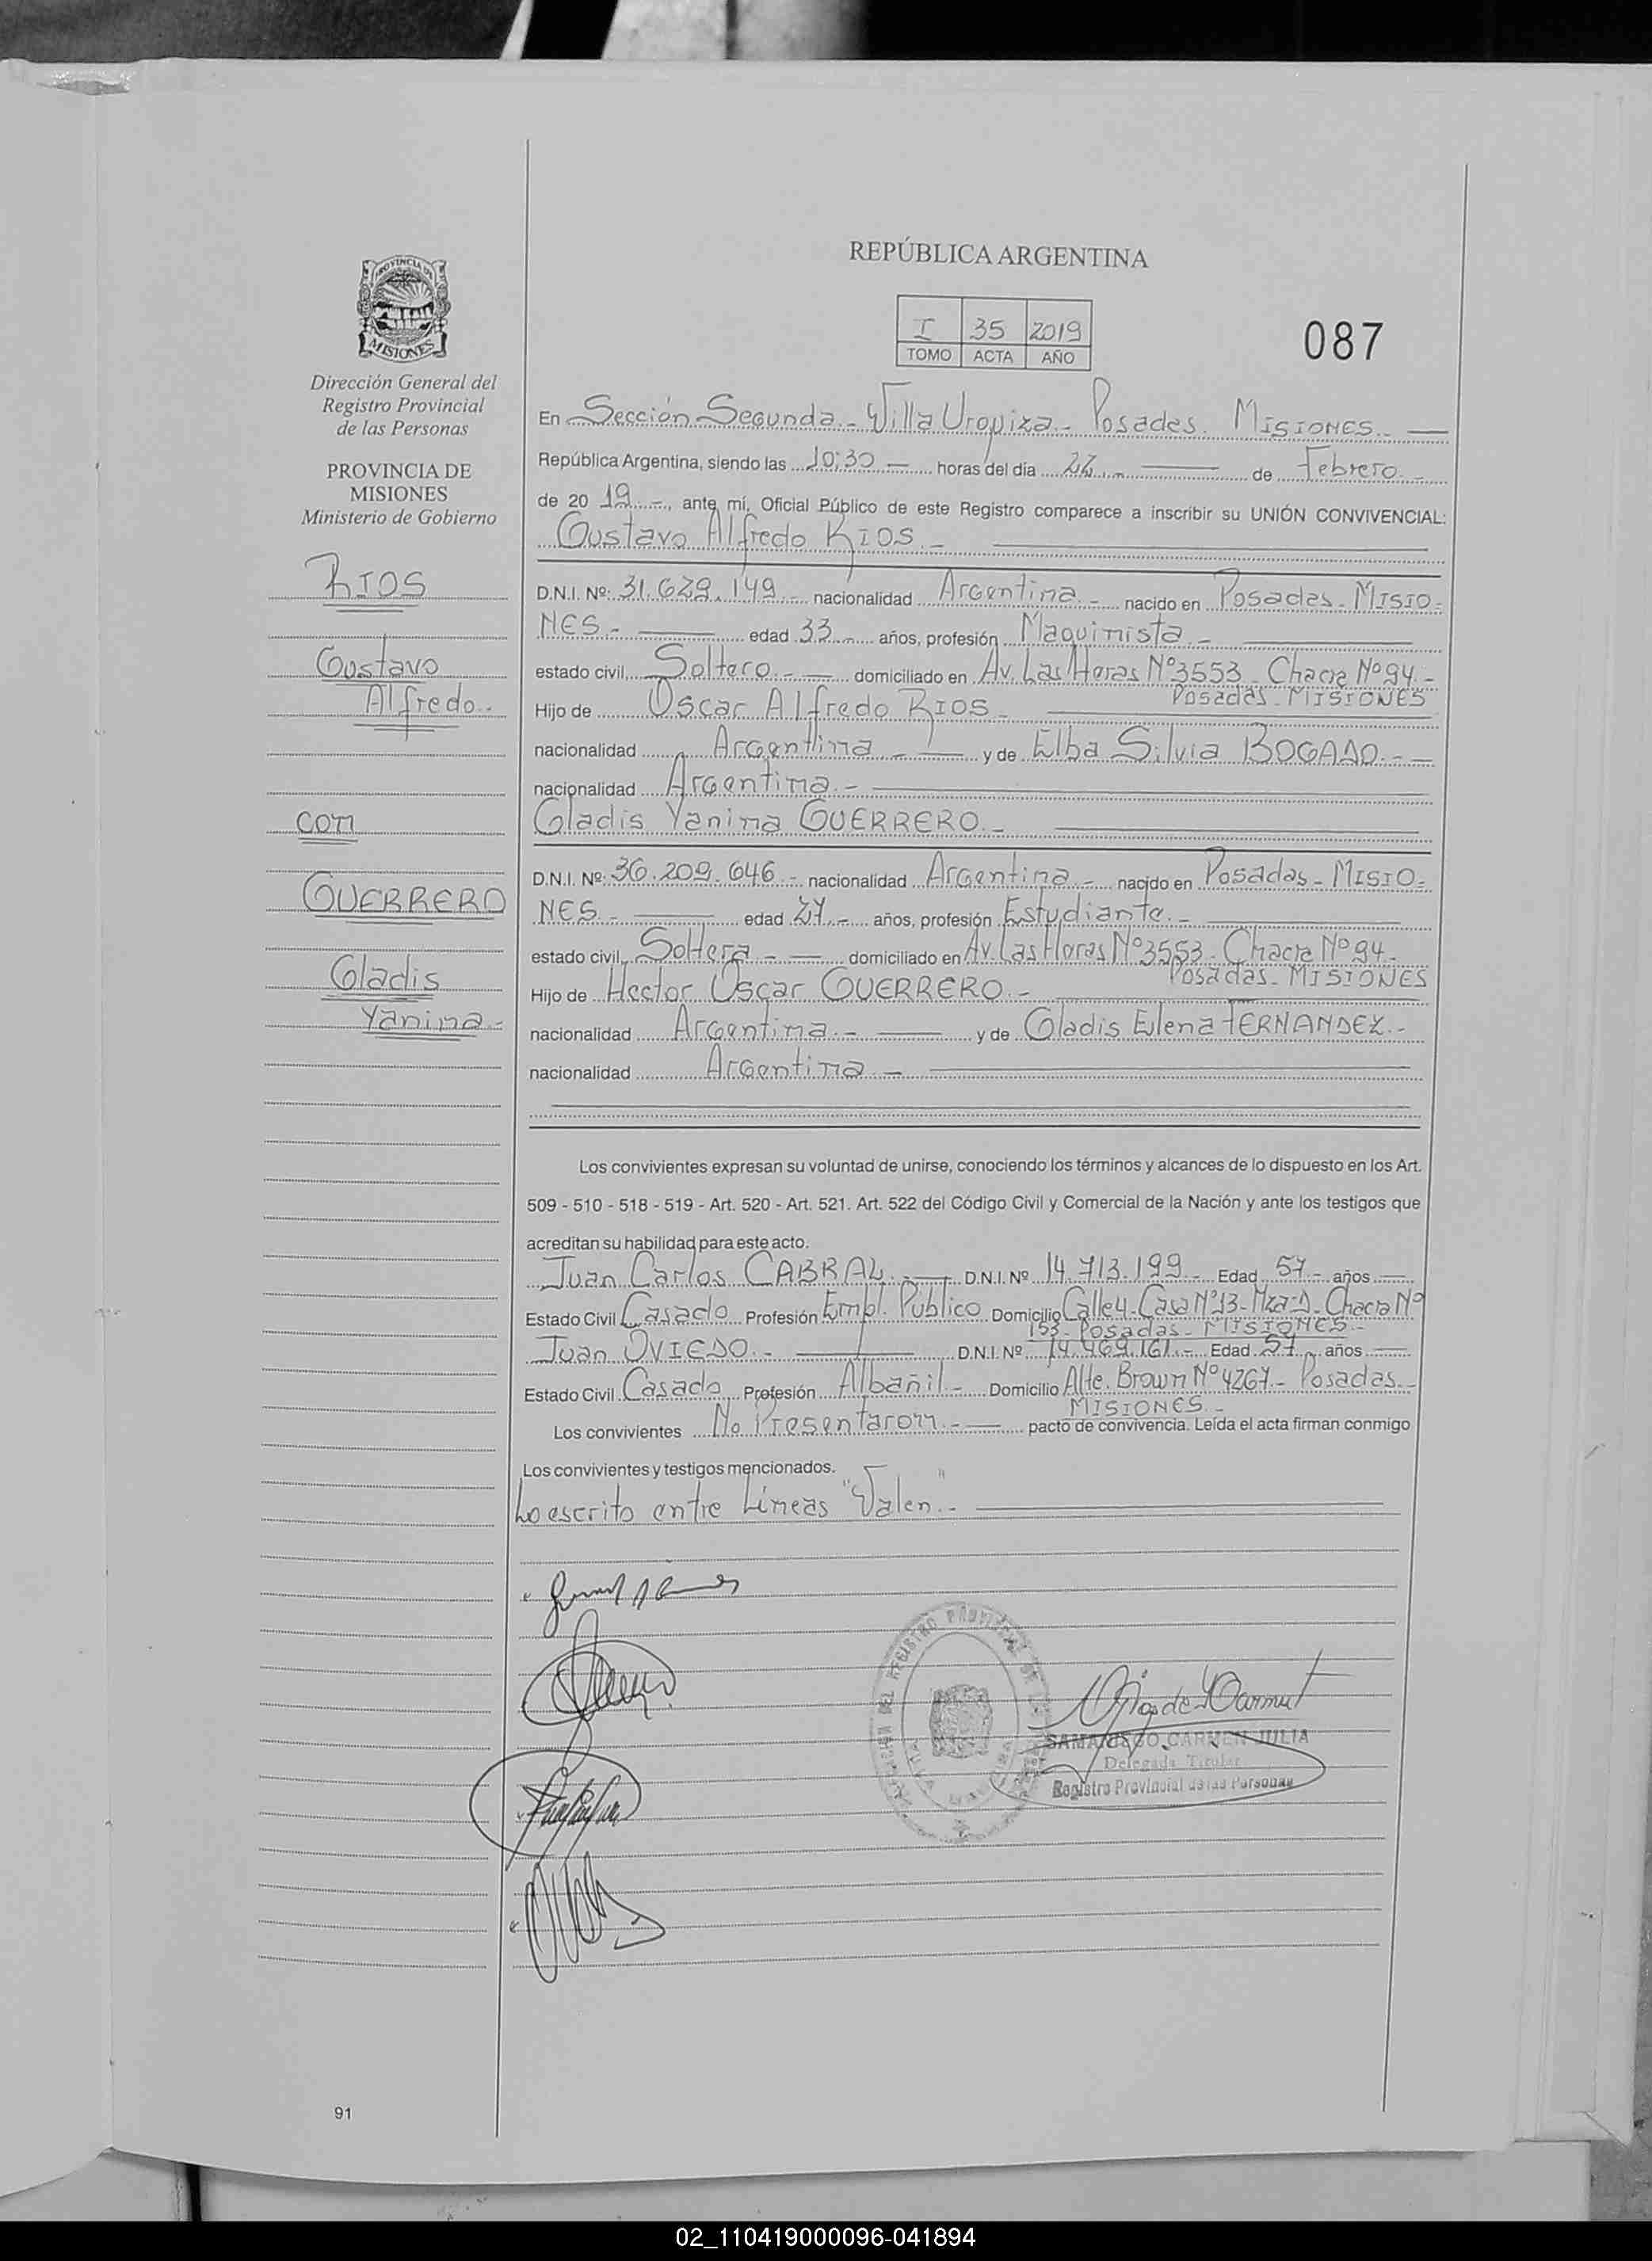 REPÚBLICA ARGENTINA
I 35 2019
TOMO ACTA AÑO
087
PROVINCIA DE
MISIONES
Dirección General del
Registro Provincial
de las Personas
PROVINCIA DE
MISIONES
Ministerio de Gobierno
RIOS
Gustavo
Alfredo.-
con
GUERRERO
Gladis
Yanina.-
En Sección Segunda.- Villa Urquiza.- Posadas. MISIONES.-
República Argentina, siendo las 10:30 horas del día 22.- de Febrero.-
de 20 19.-, ante mí, Oficial Público de este Registro comparece a inscribir su UNIÓN CONVIVENCIAL:
Gustavo Alfredo RIOS.-
D.N.I. Nº: 31.629.149.- nacionalidad Argentina.- nacido en Posadas- MISIO=
NES.- edad 33.- años, profesión Maquinista.-
estado civil, Soltero.- domiciliado en Av. Las Heras Nº3553- Chacra Nº94.-
Posadas- MISIONES
Hijo de Oscar Alfredo RIOS.-
nacionalidad Argentina.- y de Elba Silvia BOGADO.-
nacionalidad Argentina.-
Gladis Yanina GUERRERO.-
D.N.I. Nº: 36.209.646.- nacionalidad Argentina.- nacido en Posadas- MISIO=
NES.- edad 27.- años, profesión Estudiante.-
estado civil, Soltera.- domiciliado en Av. Las Heras Nº3553- Chacra Nº94.-
Posadas- MISIONES
Hijo de Hector Oscar GUERRERO.-
nacionalidad Argentina.- y de Gladis Elena FERNANDEZ.-
nacionalidad Argentina.-
Los convivientes expresan su voluntad de unirse, conociendo los términos y alcances de lo dispuesto en los Art.
509 - 510 - 518 - 519 - Art. 520 - Art. 521. Art. 522 del Código Civil y Comercial de la Nación y ante los testigos que
acreditan su habilidad para este acto.
Juan Carlos CABRAL.- D.N.I. Nº 14.713.199.- Edad 57.- años
Estado Civil Casado Profesión Empl. Público Domicilio Calle 4-Casa Nº13-Mza:D-Chacra Nº
153- Posadas- MISIONES.-
Juan OVIEDO.- D.N.I. Nº 14.469.161.- Edad 57.- años
Estado Civil Casado Profesión Albañil.- Domicilio Alte. Brown Nº4267.- Posadas.-
MISIONES.-
Los convivientes No Presentaron.- pacto de convivencia. Leída el acta firman conmigo
Los convivientes y testigos mencionados.
Lo escrito entre Líneas "Valen.-"
SAMANIEGO CARMEN JULIA
Delegada Titular
Registro Provincial de las Personas
91
02_110419000096-041894